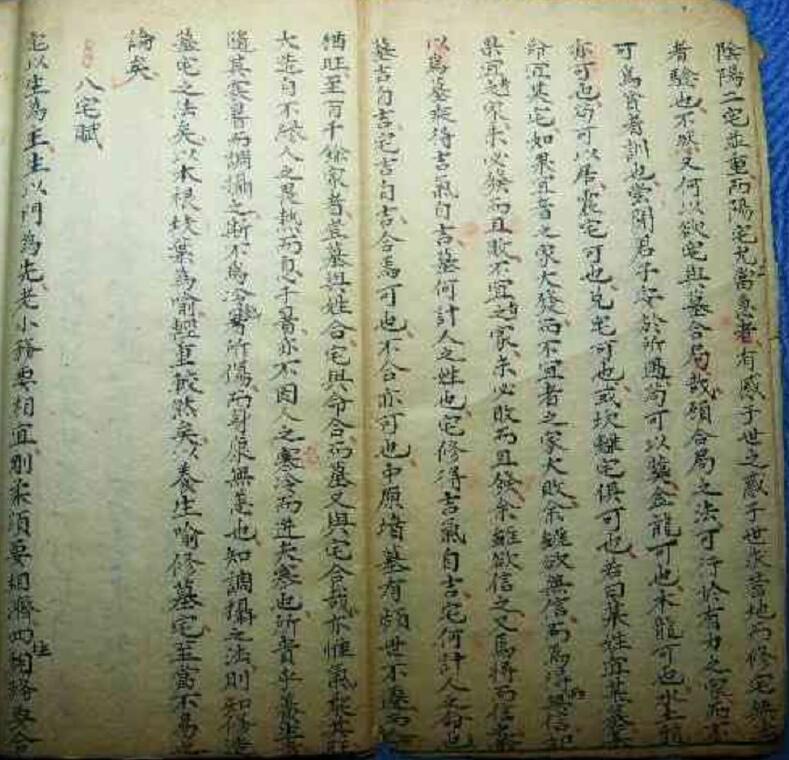 陰陽二宅並重而陽宅尤當急者有惑于世之惑于世求吉地而修宅無
者驗也不然又何以欲宅與墓合局哉頋合局之法可行於有力之家而不
可為貧者訓也嘗聞君子安於所遇苟可以塟金龍可也木龍可也水土
亦可也苟可以居震宅可也兑宅可也或坎離宅俱可也若曰某姓宜某墓某
命宜某宅如果宜者之家大發而不宜者之家大敗余雖欲無信而焉得無信
果宜之家未必發而且敗不宜之家未必敗而且發余雖欲信之又焉得而信者
以為墓乘得吉氣自吉墓何計人之姓也宅修得吉氣自吉宅何計人之命也
墓吉自吉宅吉自吉合焉可也不合亦可也中原墻墓有頗世不遷而
猶旺至百千餘家者豈墓與姓合宅與命合而墓又與宅合哉亦惟氣聚其旺
大造自不緣人之畏熱而息于暑亦不因人之寒冷而進大寒也所貴乎養生者
隨其寒暑而調攝之斯不為冷暑所傷而身康無恙也知調攝之法則知修塟
墓宅之法矣以木根枝葉為喻輕重較然矣以養生喻修墓宅至當不易
論矣
八宅賦
宅以坐為主坐以門為先老小務要相宜剛柔須要相濟四柱務要合